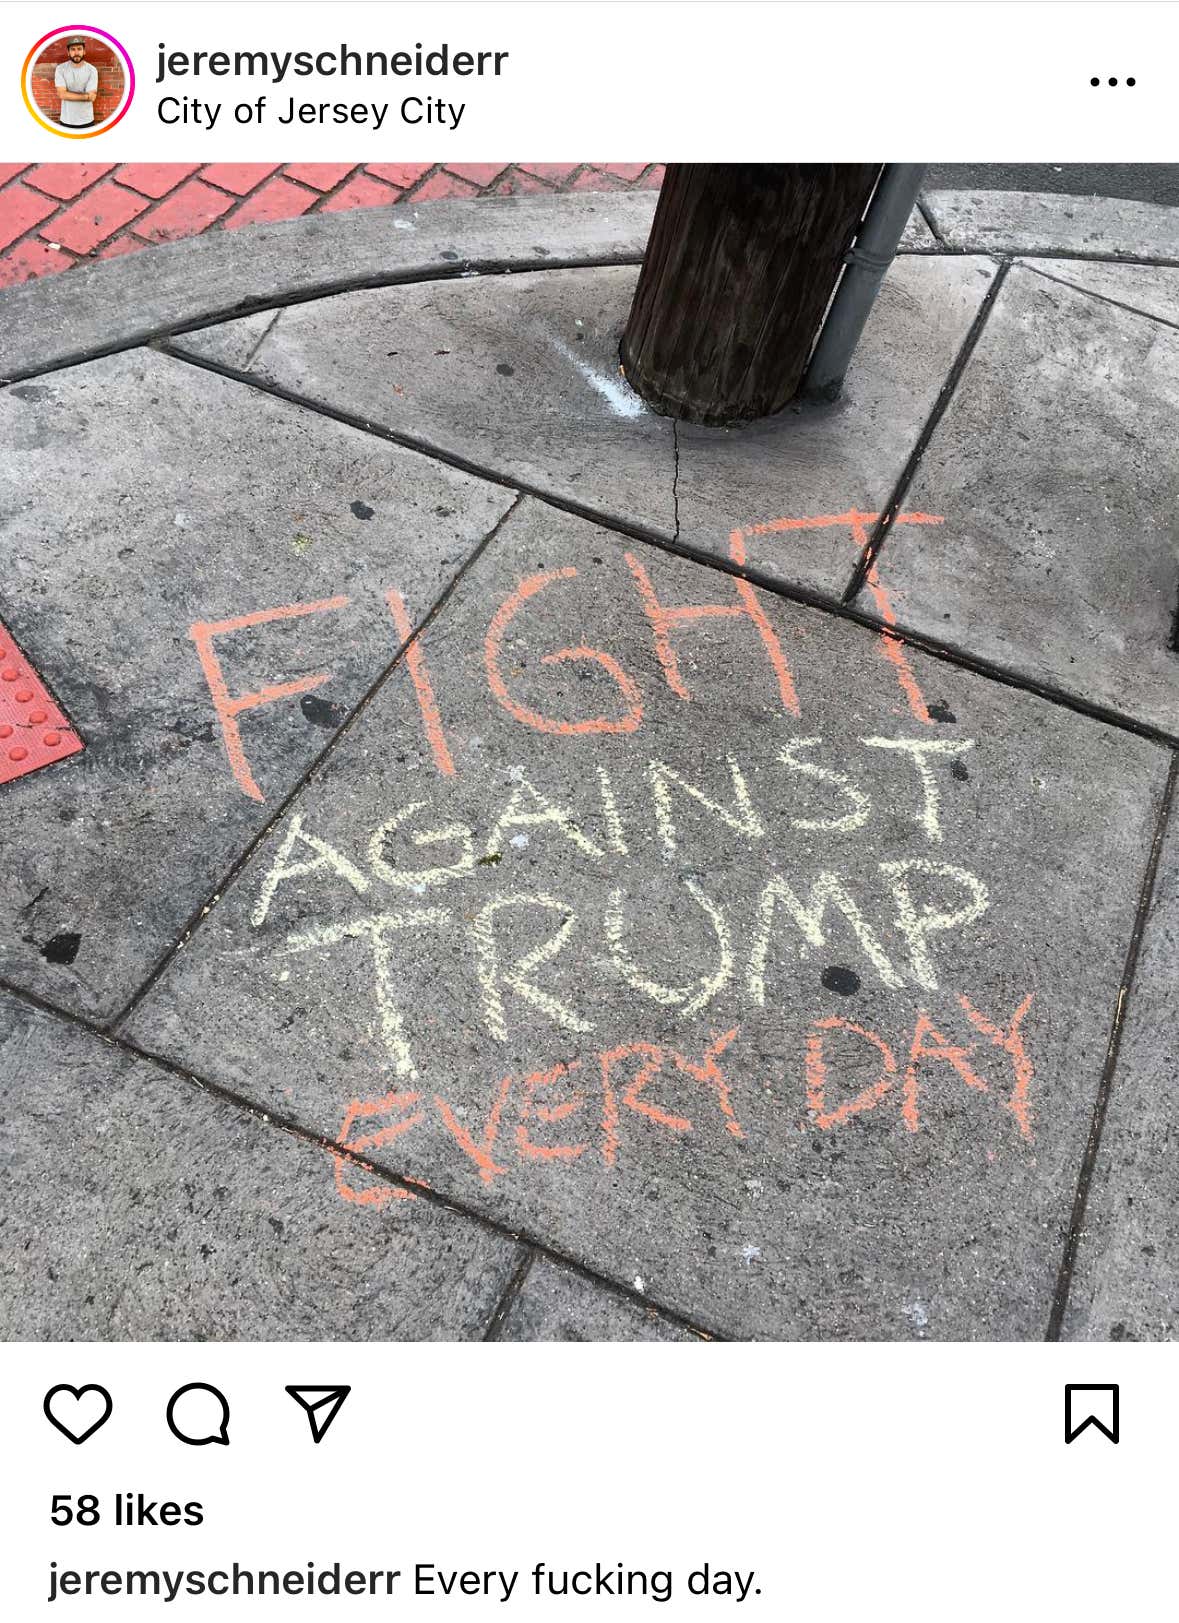 jeremyschneiderr
City of Jersey City
FIGHT
AGAINST
TRUMP
EVERY DAY
58 likes
jeremyschneiderr Every fucking day.